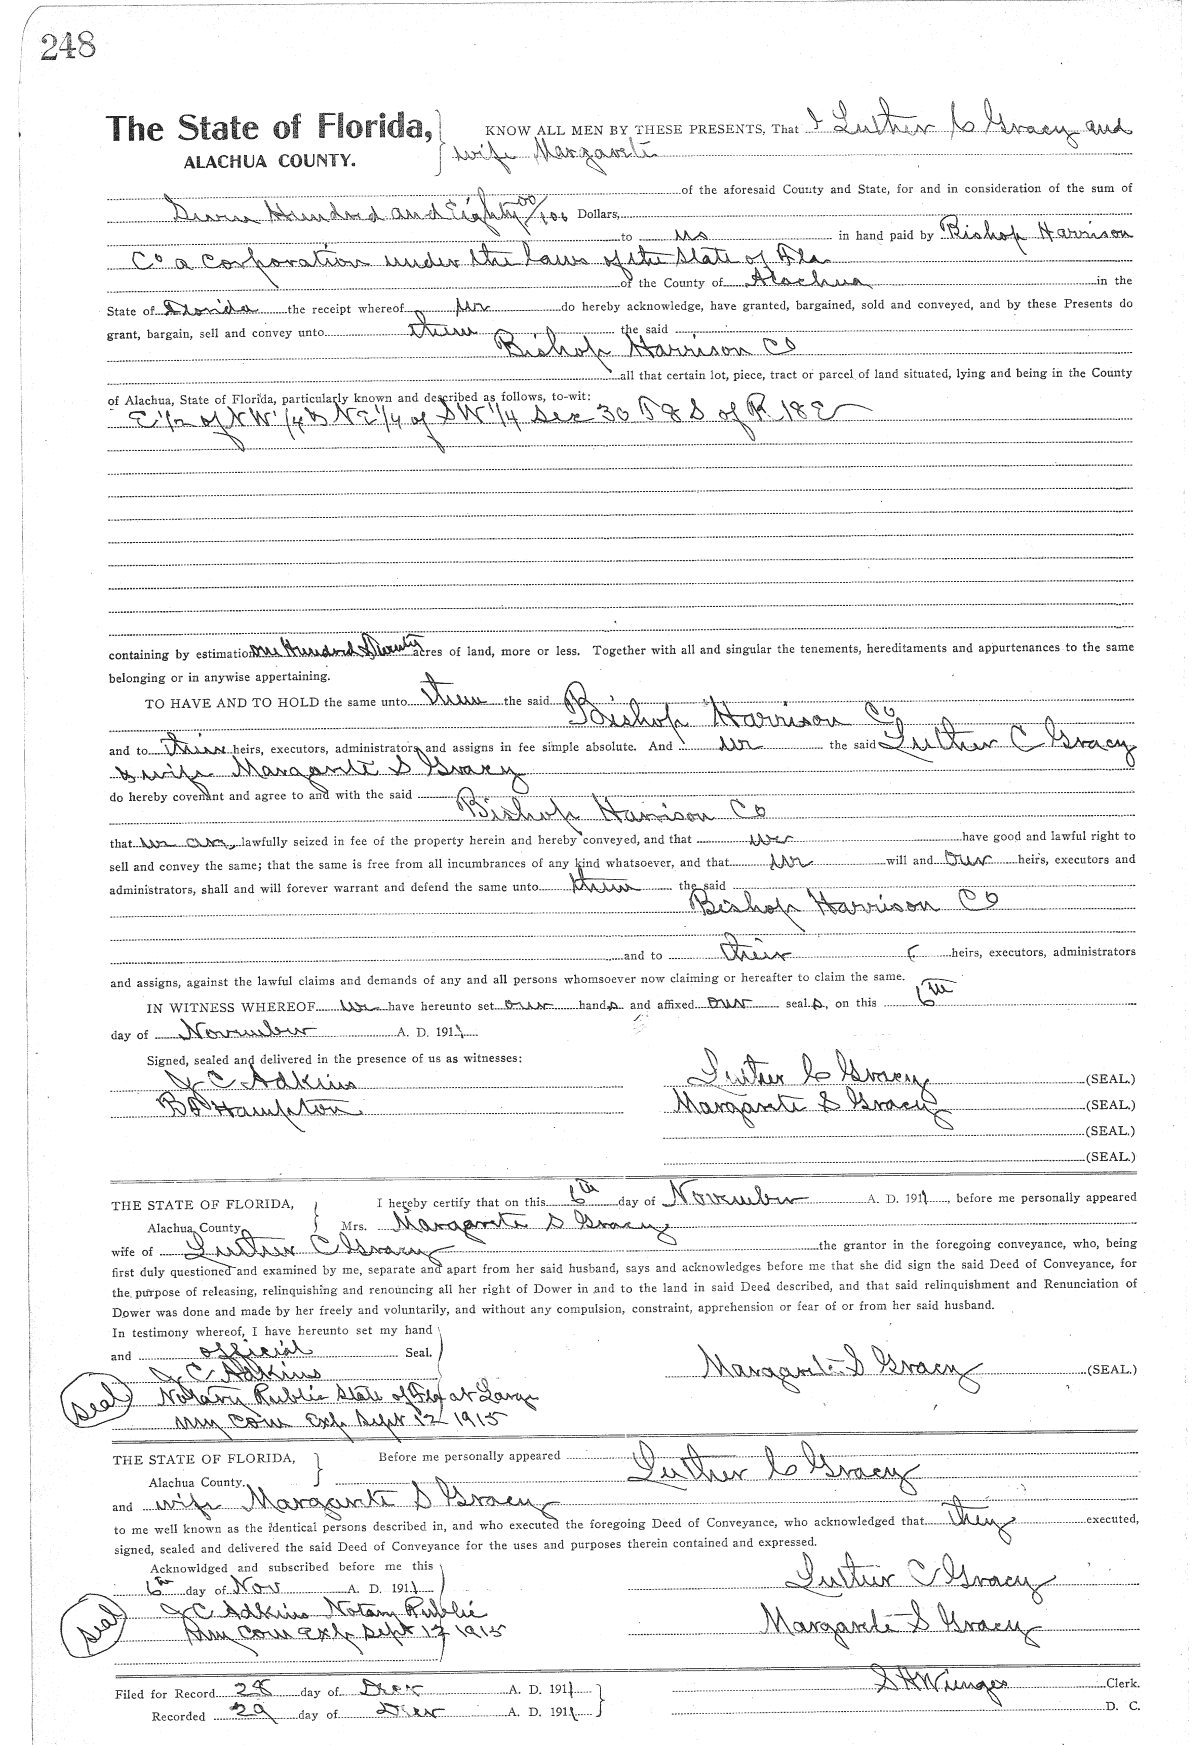 248
The State of Florida, KNOW ALL MEN BY THESE PRESENTS, That I Luther C Gracy and
ALACHUA COUNTY. wife Margarete
of the aforesaid County and State, for and in consideration of the sum of
Seven Hundred and Eighty 00/100 Dollars,
to us in hand paid by Bishop Harrison
Co a corporation under the laws of the State of Fla
of the County of Alachua in the
State of Florida the receipt whereof we do hereby acknowledge, have granted, bargained, sold and conveyed, and by these Presents do
grant, bargain, sell and convey unto them the said
Bishop Harrison Co
all that certain lot, piece, tract or parcel of land situated, lying and being in the County
of Alachua, State of Florida, particularly known and described as follows, to-wit:
E 1/2 of NW 1/4 & NE 1/4 of SW 1/4 Sec 30 T 8 S of R 18 E
containing by estimation one Hundred & Twenty acres of land, more or less. Together with all and singular the tenements, hereditaments and appurtenances to the same
belonging or in anywise appertaining.
TO HAVE AND TO HOLD the same unto them the said Bishop Harrison Co
and to their heirs, executors, administrators and assigns in fee simple absolute. And we the said Luther C Gracy
& wife Margarete S Gracy
do hereby covenant and agree to and with the said
Bishop Harrison Co
that we are lawfully seized in fee of the property herein and hereby conveyed, and that we have good and lawful right to
sell and convey the same; that the same is free from all incumbrances of any kind whatsoever, and that we will and our heirs, executors and
administrators, shall and will forever warrant and defend the same unto them the said
Bishop Harrison Co
and to their heirs, executors, administrators
and assigns, against the lawful claims and demands of any and all persons whomsoever now claiming or hereafter to claim the same.
IN WITNESS WHEREOF we have hereunto set our hands and affixed our seals, on this 6th
day of November A. D. 1911
Signed, sealed and delivered in the presence of us as witnesses:
J C Adkins Luther C Gracy (SEAL.)
B D Hampton Margarete S Gracy (SEAL.)
(SEAL.)
(SEAL.)
THE STATE OF FLORIDA, I hereby certify that on this 6th day of November A. D. 1911, before me personally appeared
Alachua County Mrs. Margarete S Gracy
wife of Luther C Gracy the grantor in the foregoing conveyance, who, being
first duly questioned and examined by me, separate and apart from her said husband, says and acknowledges before me that she did sign the said Deed of Conveyance, for
the purpose of releasing, relinquishing and renouncing all her right of Dower in and to the land in said Deed described, and that said relinquishment and Renunciation of
Dower was done and made by her freely and voluntarily, and without any compulsion, constraint, apprehension or fear of or from her said husband.
In testimony whereof, I have hereunto set my hand
and official Seal.
J C Adkins Margarete S Gracy (SEAL.)
Seal Notary Public State of Fla at Large
My Com Exp Sept 12 1915
THE STATE OF FLORIDA, Before me personally appeared Luther C Gracy
Alachua County.
and wife Margarete S Gracy
to me well known as the identical persons described in, and who executed the foregoing Deed of Conveyance, who acknowledged that they executed,
signed, sealed and delivered the said Deed of Conveyance for the uses and purposes therein contained and expressed.
Acknowldged and subscribed before me this
6th day of Nov A. D. 1911 Luther C Gracy
Seal J C Adkins Notary Public
My Com Exp Sept 12 1915 Margarete S Gracy
Filed for Record 28 day of Dec A. D. 1911 S H Wienges Clerk.
Recorded 29 day of Dec A. D. 1911 D. C.